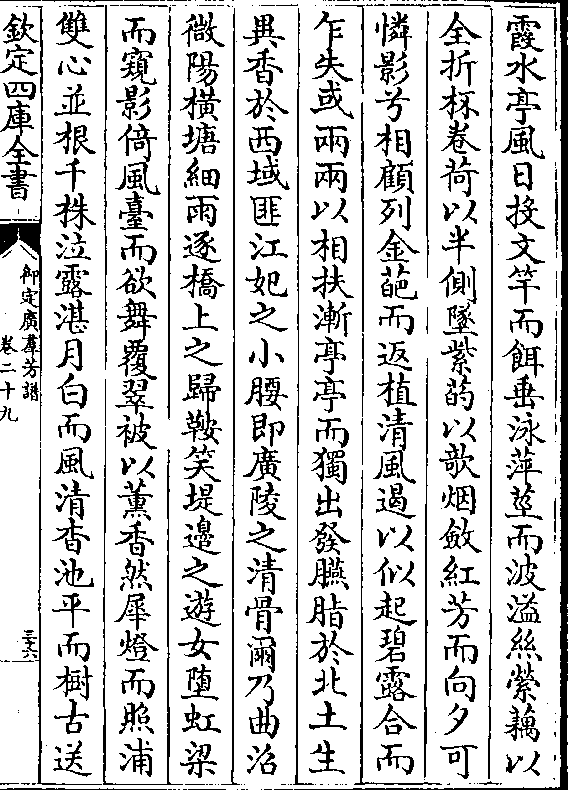 霞水亭風日投文竿而餌垂泳萍莖而波溢絲縈藕以
全折杯卷荷以半側墜紫菂以欹烟斂紅芳而向夕可
憐影兮相顧列金葩而返植清風過以似起碧露合而
乍失或兩兩以相扶漸亭亭而獨出發臙脂於北土生
異香於西域匪江妃之小腰即廣陵之清骨爾乃曲沼
微陽橫塘細雨逐橋上之歸鞍笑堤邊之遊女墮虹梁
而窺影倚風臺而欲舞覆翠被以薰香然犀燈而照浦
雙心並根千株泣露湛月白而風清杳池平而樹古送
欽定四庫全書
御定廣羣芳譜
卷二十九
三六